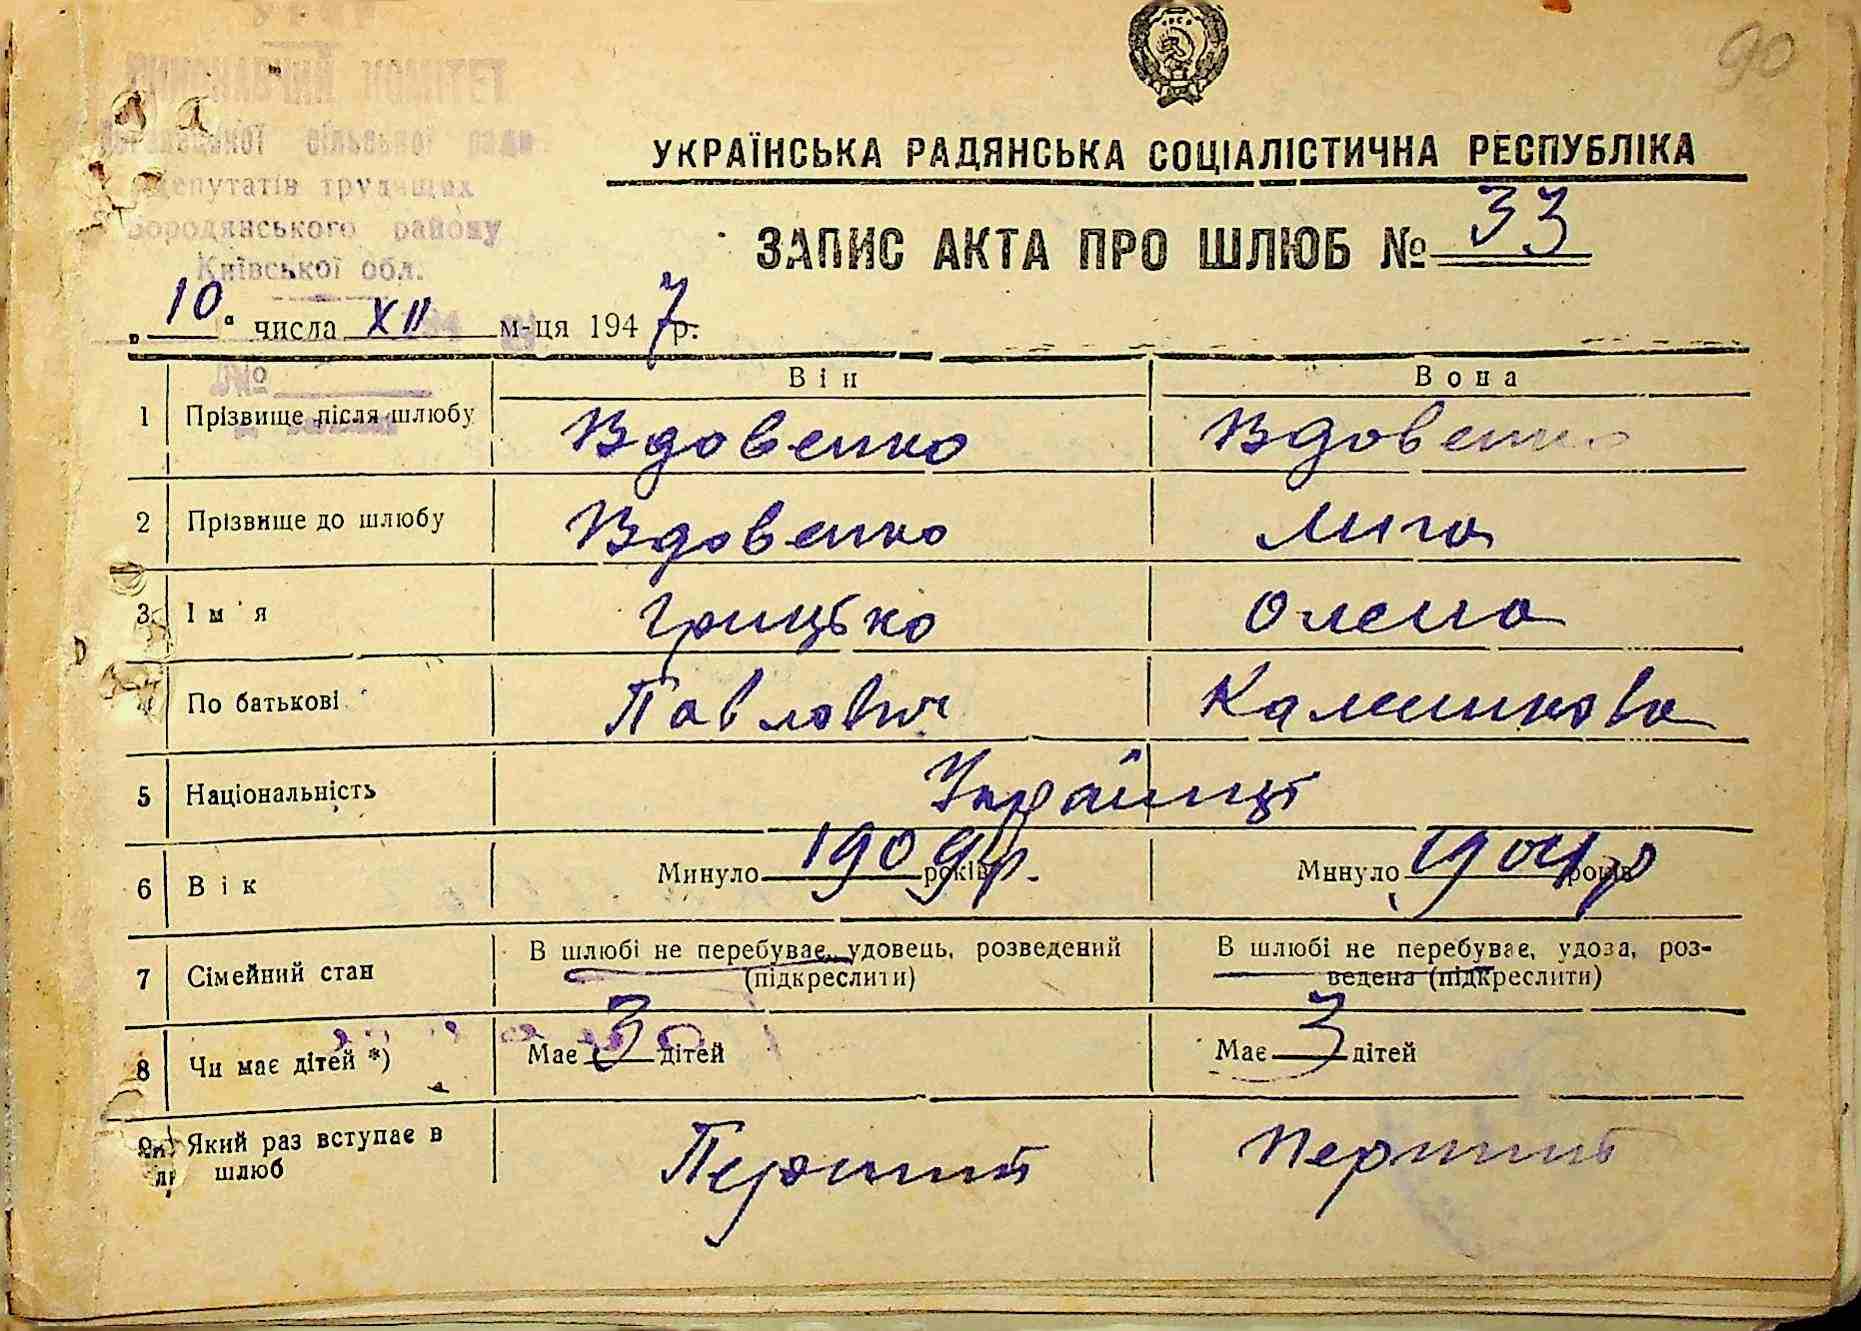 90
ВИКОНАВЧИЙ КОМІТЕТ
сільської ради
депутатів трудящих
Бородянського району
Київської обл.
№
УКРАЇНСЬКА РАДЯНСЬКА СОЦІАЛІСТИЧНА РЕСПУБЛІКА
ЗАПИС АКТА ПРО ШЛЮБ № 33
„10“ числа XII м-ця 1947 р.
Він Вона
1 Прізвище після шлюбу Вдовенко Вдовенко
2 Прізвище до шлюбу Вдовенко Лига
3 Ім'я Грицько Олена
4 По батькові Павлович
5 Національність Українці
6 Вік Минуло 1909 р. років Минуло 1904 р років
7 Сімейний стан В шлюбі не перебуває, удовець, розведений (підкреслити) В шлюбі не перебуває, удова, роз-
ведена (підкреслити)
8 Чи має дітей *) Має 3 дітей Має 3 дітей
9 Який раз вступає в шлюб Перший Перший